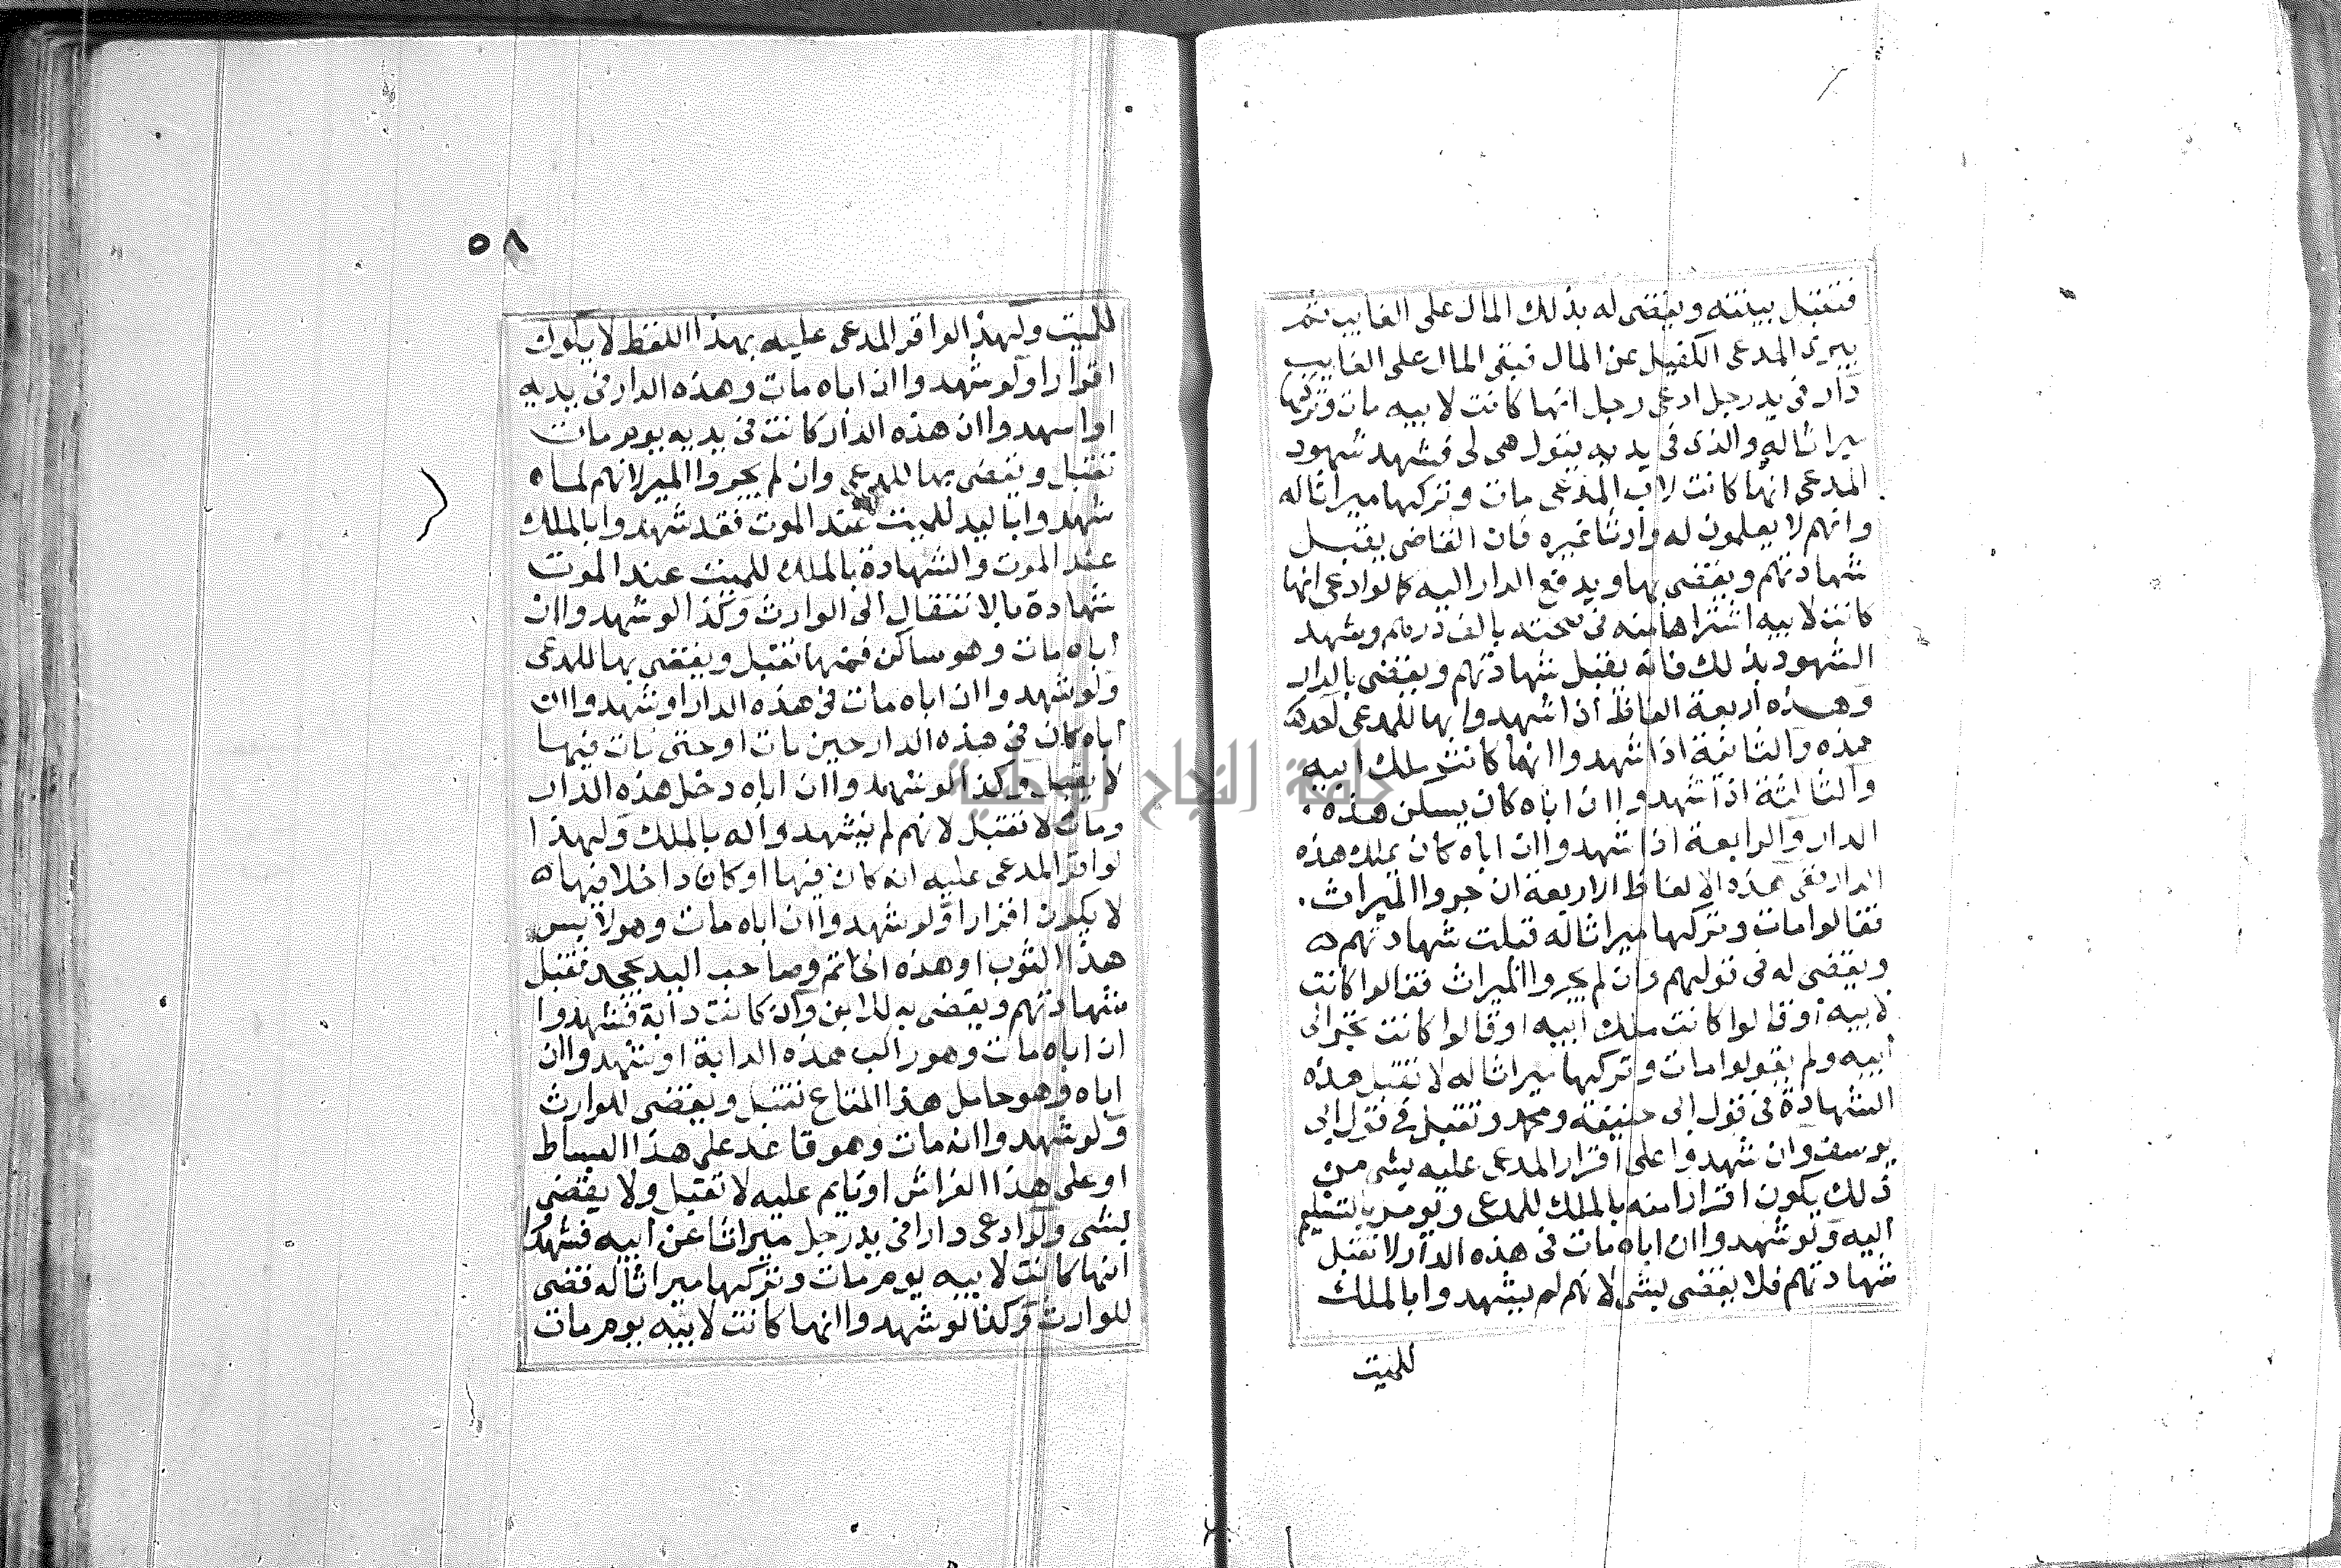 فتقبل بينته ويقضى له بذلك المال على الغايب ثم
يبرى المدعى الكفيل عن المال فيبقى المال على الغايب
دار فى يد رجل ادعى رجل انها كانت لابيه مات وتركها
ميراثا له والذى فى يديه يقول هى لى فشهد شهود
المدعى انها كانت لاب المدعى مات وتركها ميراثا له
وانهم لا يعلمون له وارثا غيره فان القاضى يقبل
شهادتهم ويقضى بها ويدفع الدار اليه كما لو ادعى انها
كانت لابيه اشتراها منه فى صحته بالف درهم وشهد
الشهود بذلك فانه يقبل شهادتهم ويقضى بالدار
وهذه اربعة الفاظ اذا شهدوا بها للمدعى احدها
هذه والثانية اذا شهدوا انها كانت ملك ابيه
والثالثة اذا شهدوا ان اباه كان يسكن هذه
الدار والرابعة اذا شهدوا ان اباه كان يملك هذه
الدار ففى هذه الالفاظ الاربعة ان جروا الميراث
فقالوا مات وتركها ميراثا له قبلت شهادتهم ه
ويقضى له فى قولهم وان لم يجروا الميراث فقالوا كانت
لابيه او قالوا كانت ملك ابيه او قالوا كانت
ابيه ولم يقولوا مات وتركها ميراثا له لا تقبل هذه
الشهادة فى قول ابى حنيفة ومحمد وتقبل فى قول ابى
يوسف وان شهدوا على اقرار المدعى عليه بشى من
ذلك يكون اقرارا منه بالملك للمدعى ويومر بالتسليم
اليه ولو شهدوا ان اباه مات فى هذه الدار لا تقبل
شهادتهم فلا يقضى بشى لانهم لم يشهدوا بالملك
للميت
٥٨
للميت ولهذا لو اقر المدعى عليه بهذا اللفظ لا يكون
اقرارا ولو شهدوا ان اباه مات وهذه الدار فى يديه
او اسهدوا ان هذه الدار كانت فى يديه يوم مات
تقبل ويقضى بها للمدعى وان لم يجروا الميراث لانهم لما ه
شهدوا باليد للميت عند الموت فقد شهدوا بالملك
عند الموت والشهادة بالملك للميت عند الموت
شهادة بالانتقال الى الوارث وكذا لو شهدوا ان
اباه مات وهو ساكن فيها تقبل ويقضى بها للمدعى
ولو شهدوا ان اباه مات فى هذه الدار او شهدوا ان
اباه كان فى هذه الدار حين مات او حتى مات فيها
لا يقبل وكذا لو شهدوا ان اباه دخل هذه الدار
ومات لا تقبل لانهم لم يشهدوا له بالملك ولهذا
لو اقر المدعى عليه انه كان فيها او كان داخلا فيها ه
لا يكون اقرارا ولو شهدوا ان اباه مات وهو لابس
هذا الثوب او هذه الخاتم وصاحب اليد يجحد تقبل
شهادتهم ويقضى به للابن وان كانت دابة فشهدوا
ان اباه مات وهو راكب هذه الدابة او شهدوا ان
اباه وهو حامل هذا المتاع تقبل ويقضى للوارث
ولو شهدوا انه مات وهو قاعد على هذا البساط
او على هذا الفراش او نايم عليه لا تقبل ولا يقضى
بشى ولو ادعى دارا فى يد رجل ميراثا عن ابيه فشهدوا
انها كانت لابيه يوم مات وتركها ميراثا له فقضى
للوارث وكذا لو شهدوا انها كانت لابيه يوم مات